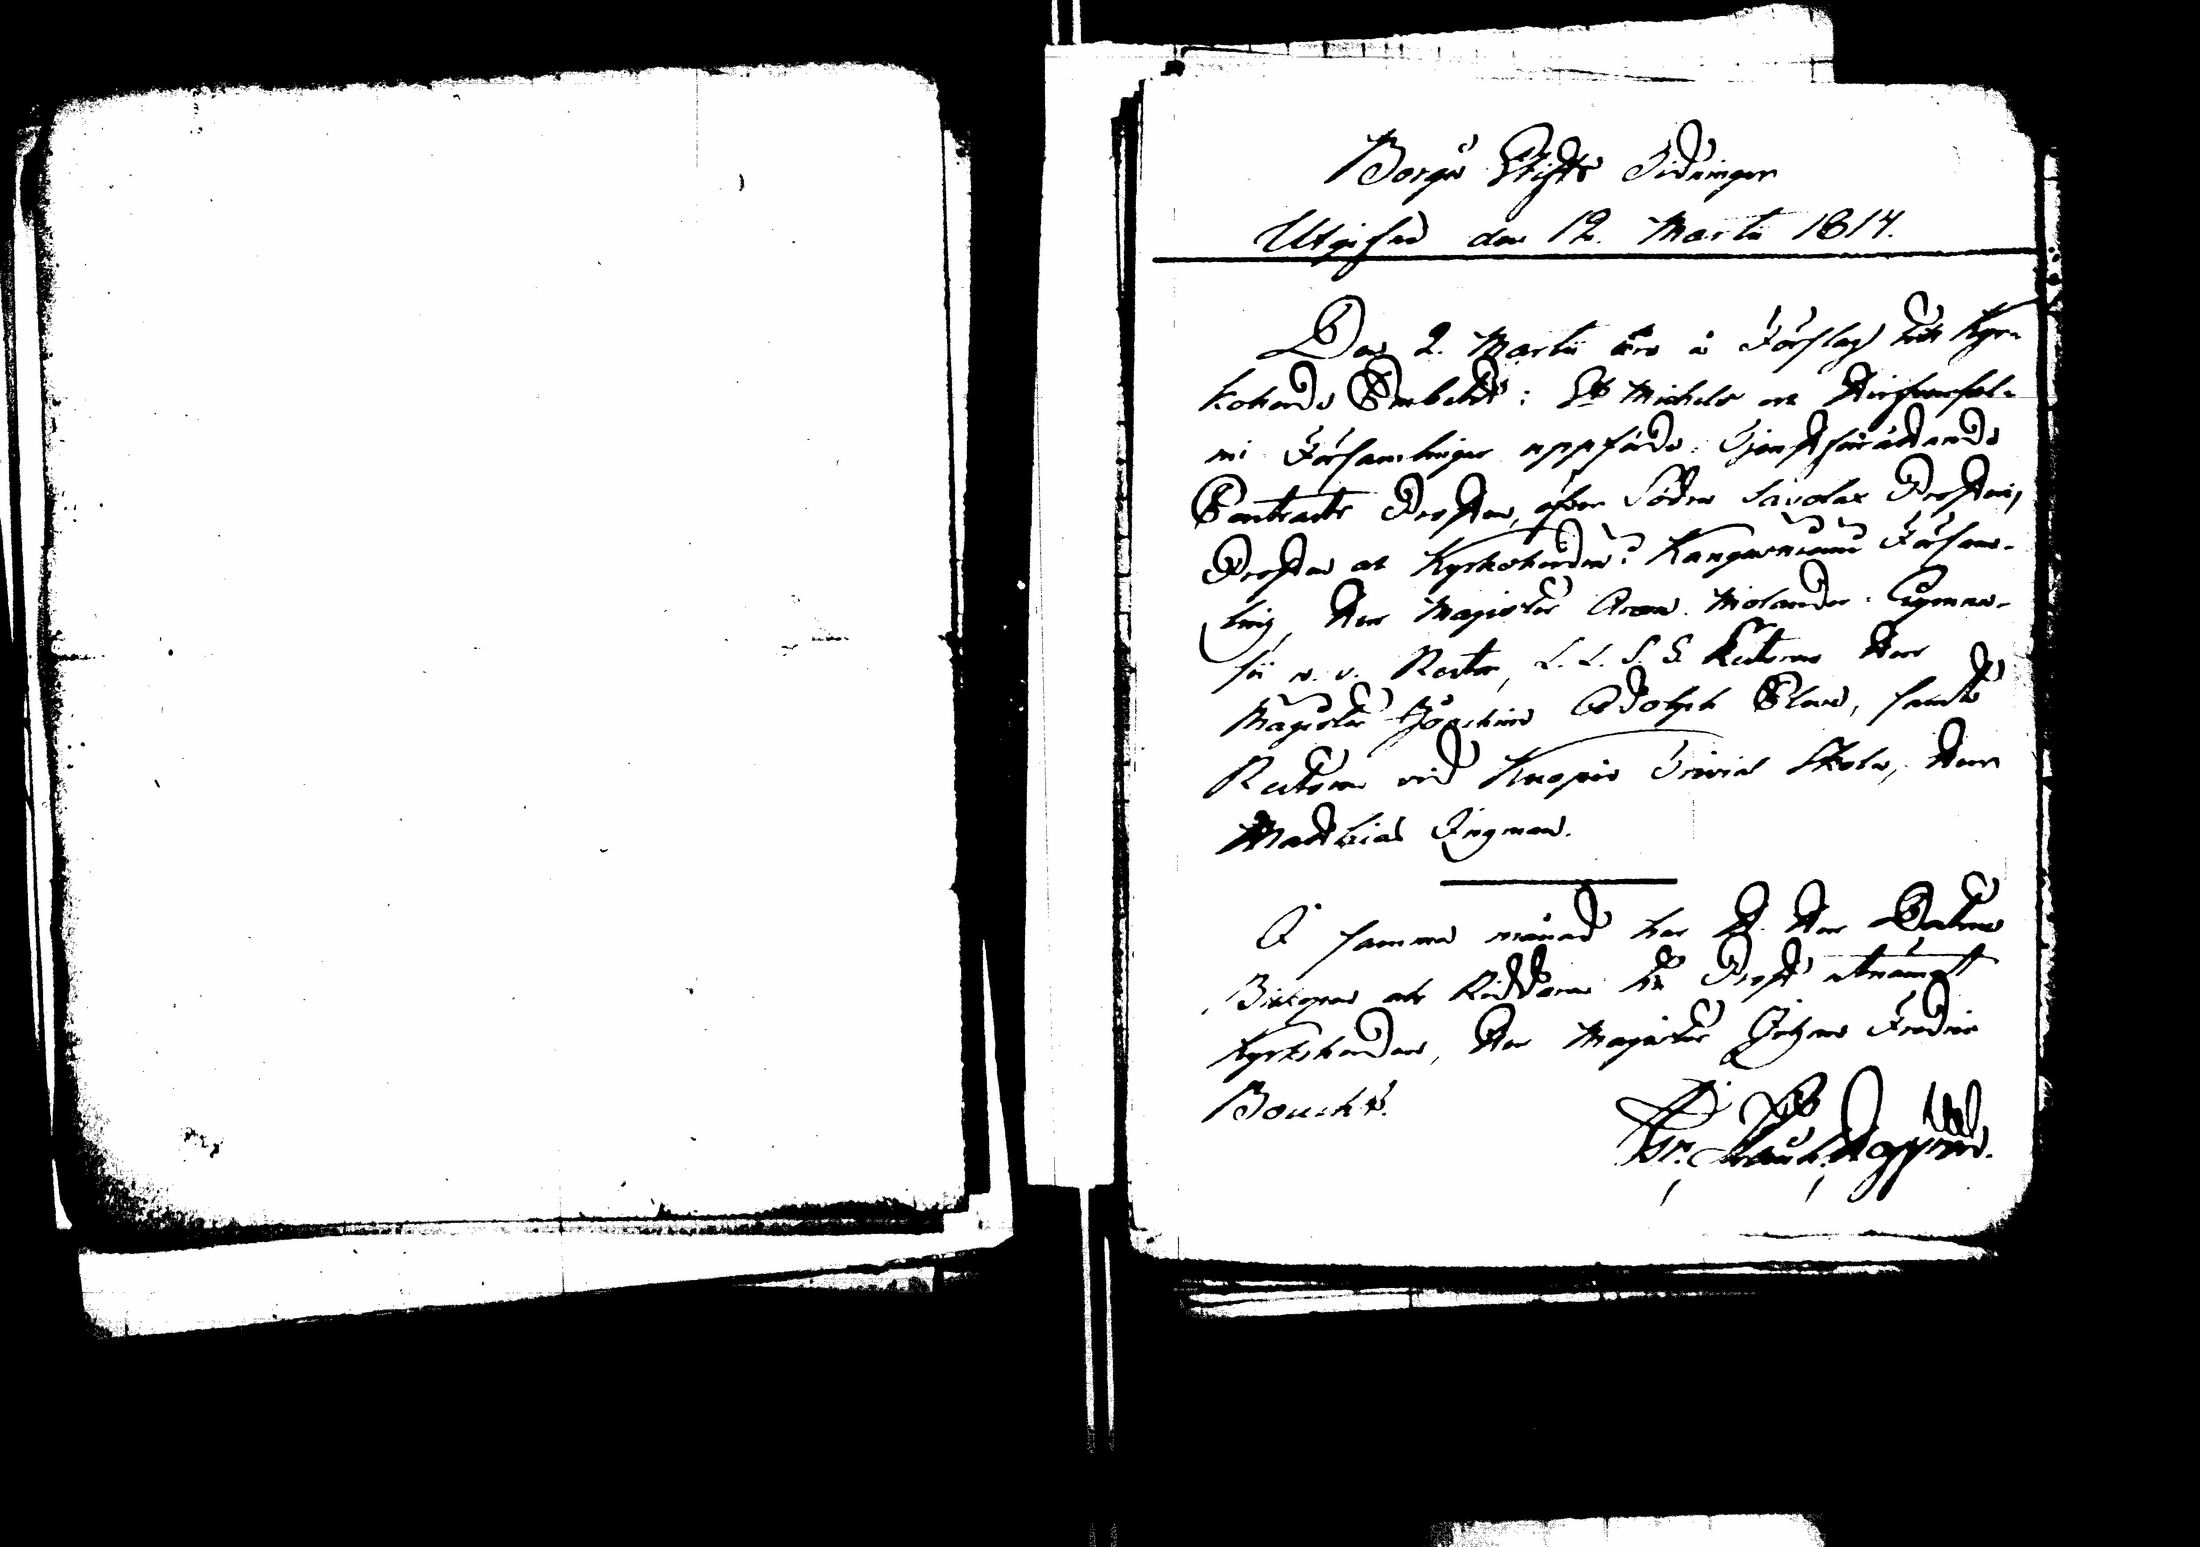 Borgå Stifts Tidningar
Utgifne den 12. Martii 1814.
Den 2. Martii äro å Förslag till Kyr-
koherde Embetet i St Michels och Hirfvensal-
mi Församlingar uppförde: Tjenstförrättande
Contracts Prosten, öfver Södra Savolax Prosteri,
Prosten och Kyrkoherden i Kangasniemi Försam-
ling, Herr Magister Aron Molander. Gymna-
sii v. v. Rector, L. L. S. S. Lectoren Herr
Magister Joachim Adolph Cleve, samt
Rectorn vid Kuopio Trivial Skola, Herr
Matthias Ingman.
I samma månad har H. Herr Doctorn
Biskopen och Riddaren till Prost utnämgt
Kyrkoherden, Herr Magister Johan Fredric
Boucht.